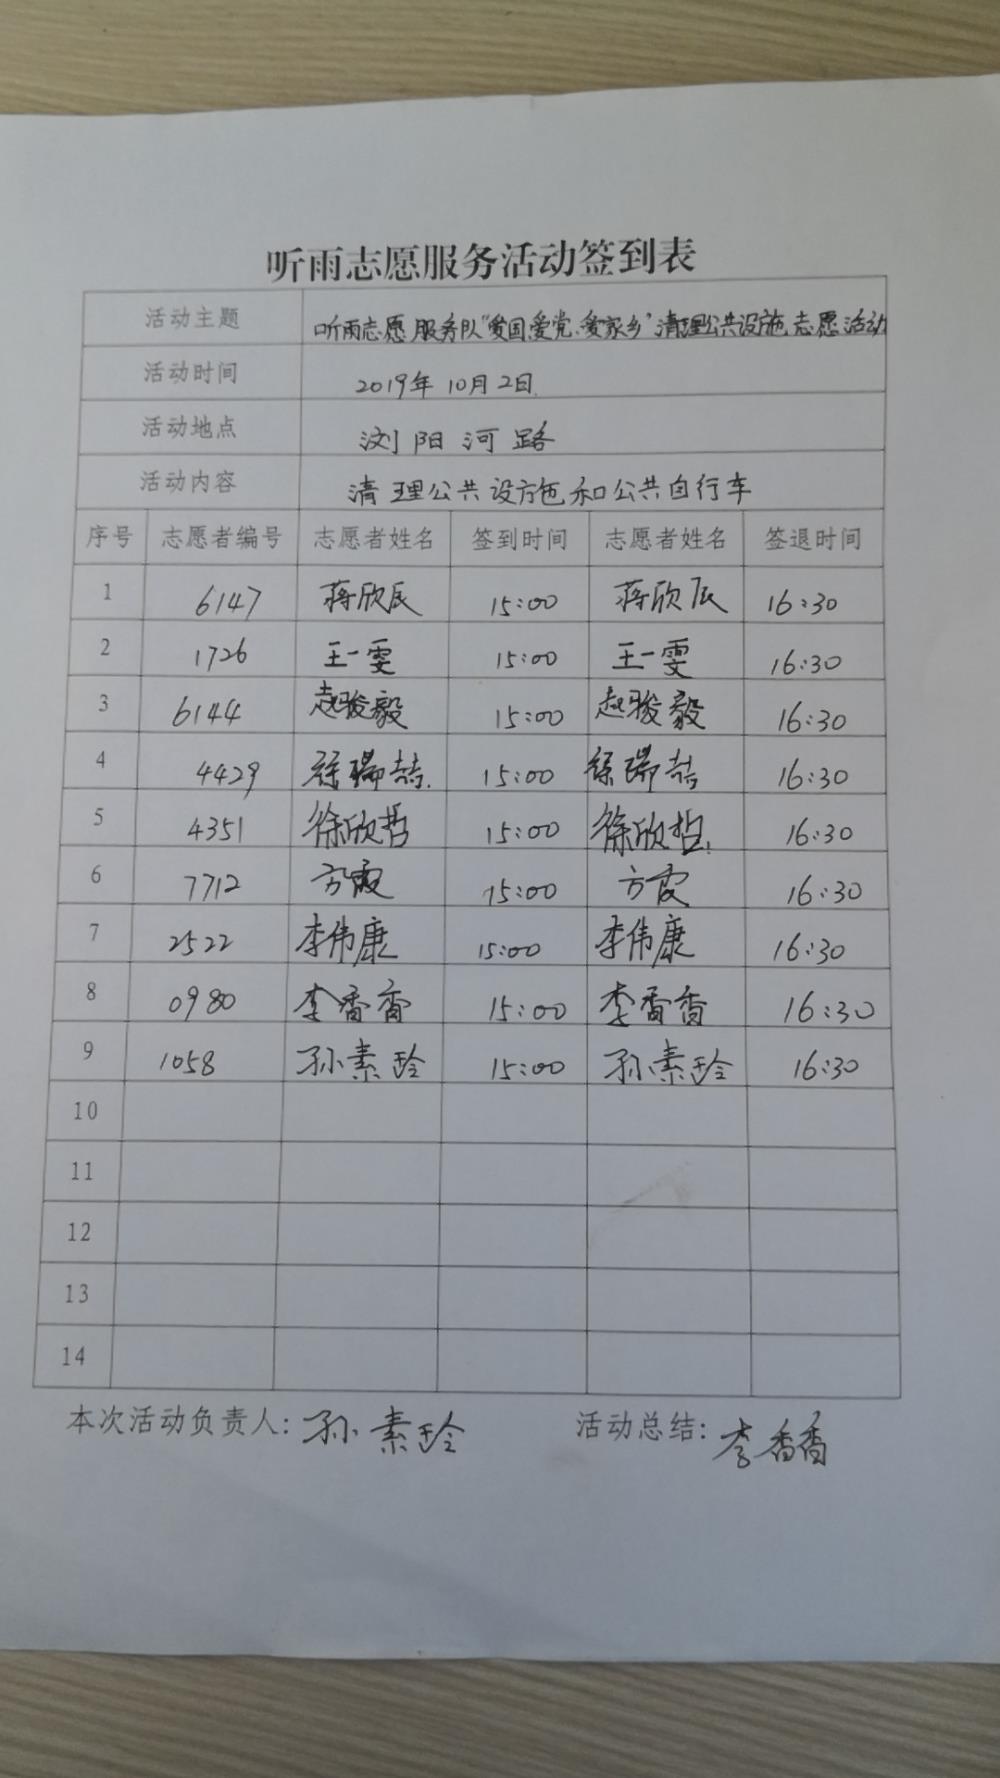 听雨志愿服务活动签到表
活动主题 听雨志愿服务队“爱国、爱党、爱家乡”清理公共设施志愿活动
活动时间 2019年10月2日
活动地点 浏阳河路
活动内容 清理公共设施和公共自行车
序号 志愿者编号 志愿者姓名 签到时间 志愿者姓名 签退时间
1 6147 蒋欣辰 15:00 蒋欣辰 16:30
2 1726 王一雯 15:00 王一雯 16:30
3 6144 赵骏毅 15:00 赵骏毅 16:30
4 4429 徐瑞喆 15:00 徐瑞喆 16:30
5 4351 徐欣哲 15:00 徐欣哲 16:30
6 7712 方霞 15:00 方霞 16:30
7 2522 李伟康 15:00 李伟康 16:30
8 0980 李香香 15:00 李香香 16:30
9 1058 孙素玲 15:00 孙素玲 16:30
10
11
12
13
14
本次活动负责人: 孙素玲 活动总结: 李香香